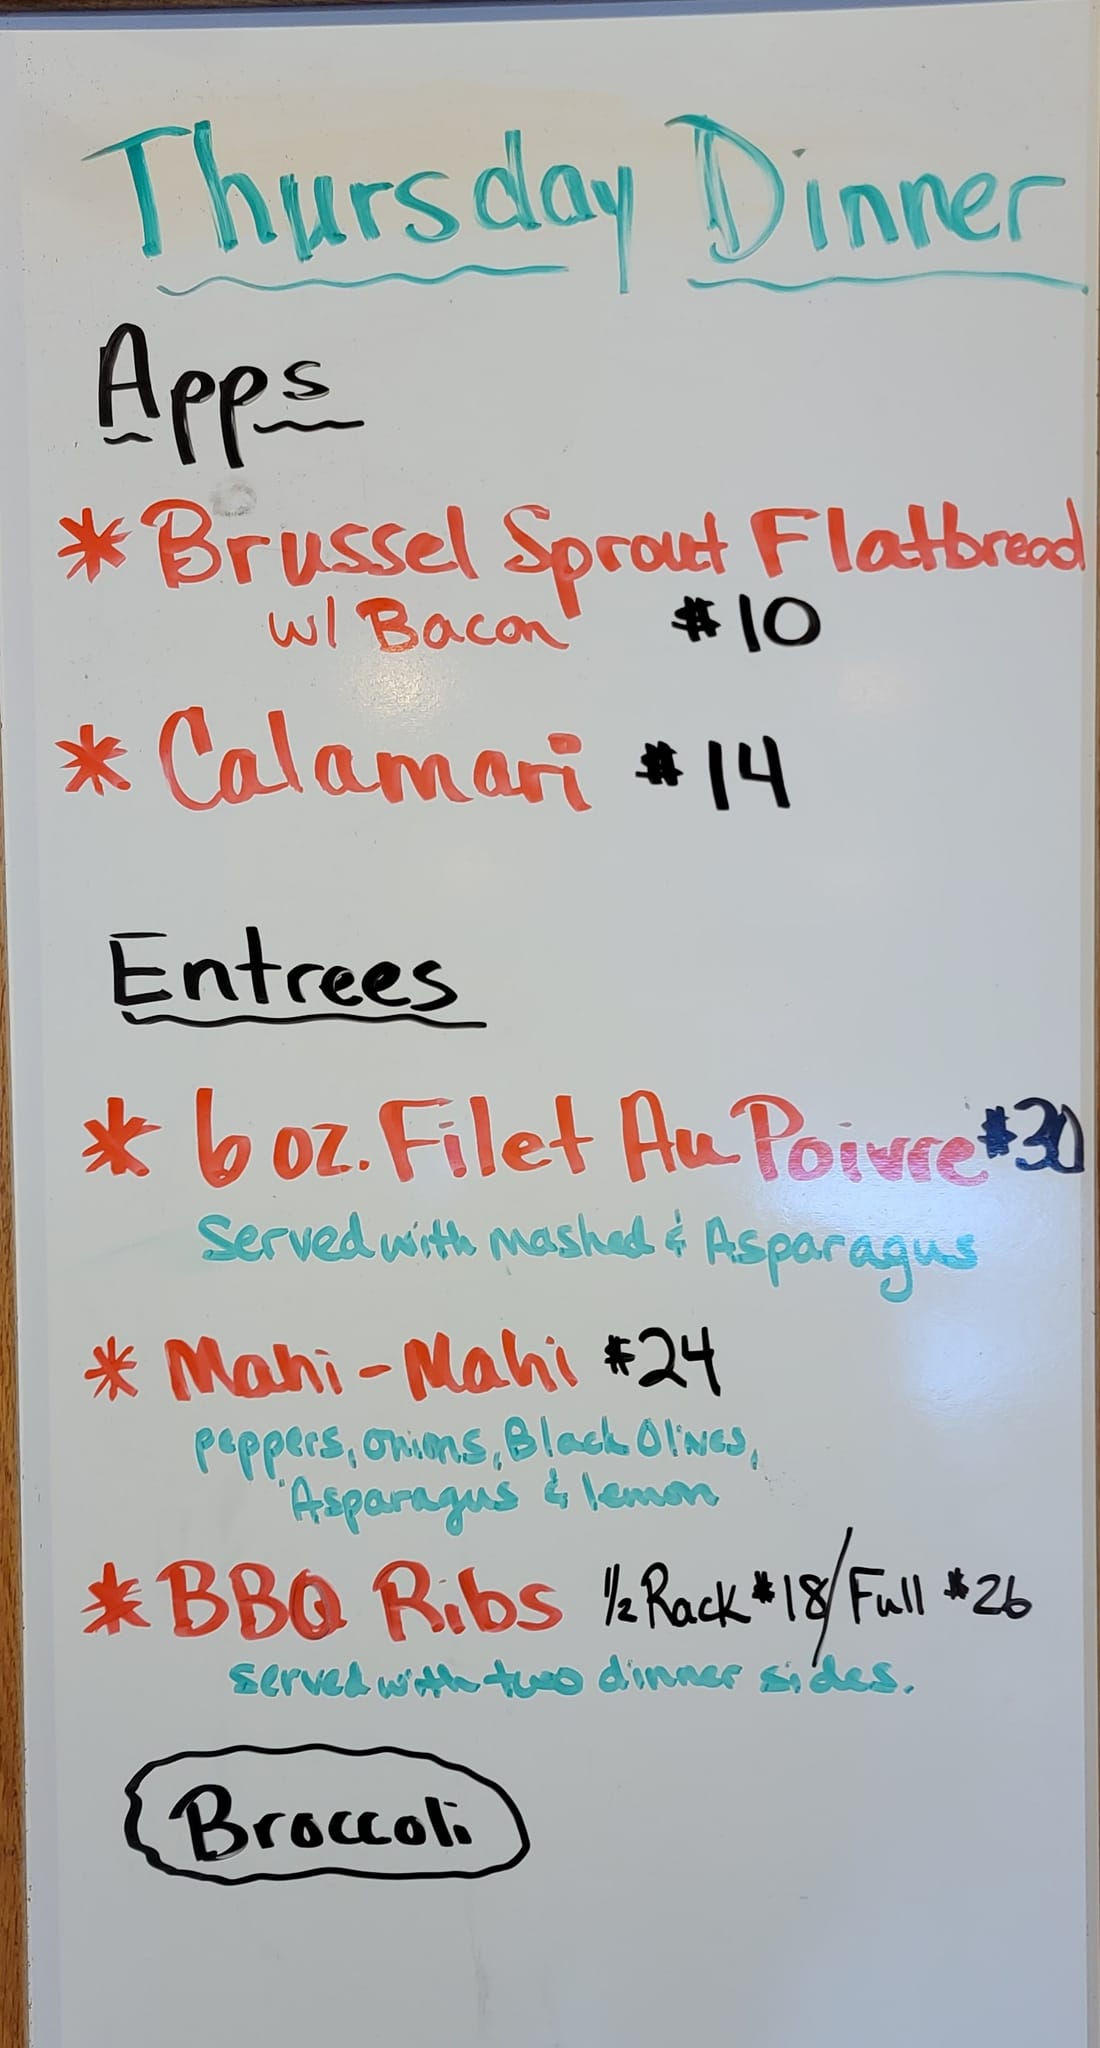 Thursday Dinner
Apps
* Brussel Sprout Flatbread
w/ Bacon $10
* Calamari $14
Entrees
* 6 oz. Filet Au Poivre $30
Served with mashed & Asparagus
* Mahi-Mahi $24
peppers, onions, Black Olives,
Asparagus & lemon
* BBQ Ribs ½ Rack $18/Full $26
served with two dinner sides.
Broccoli